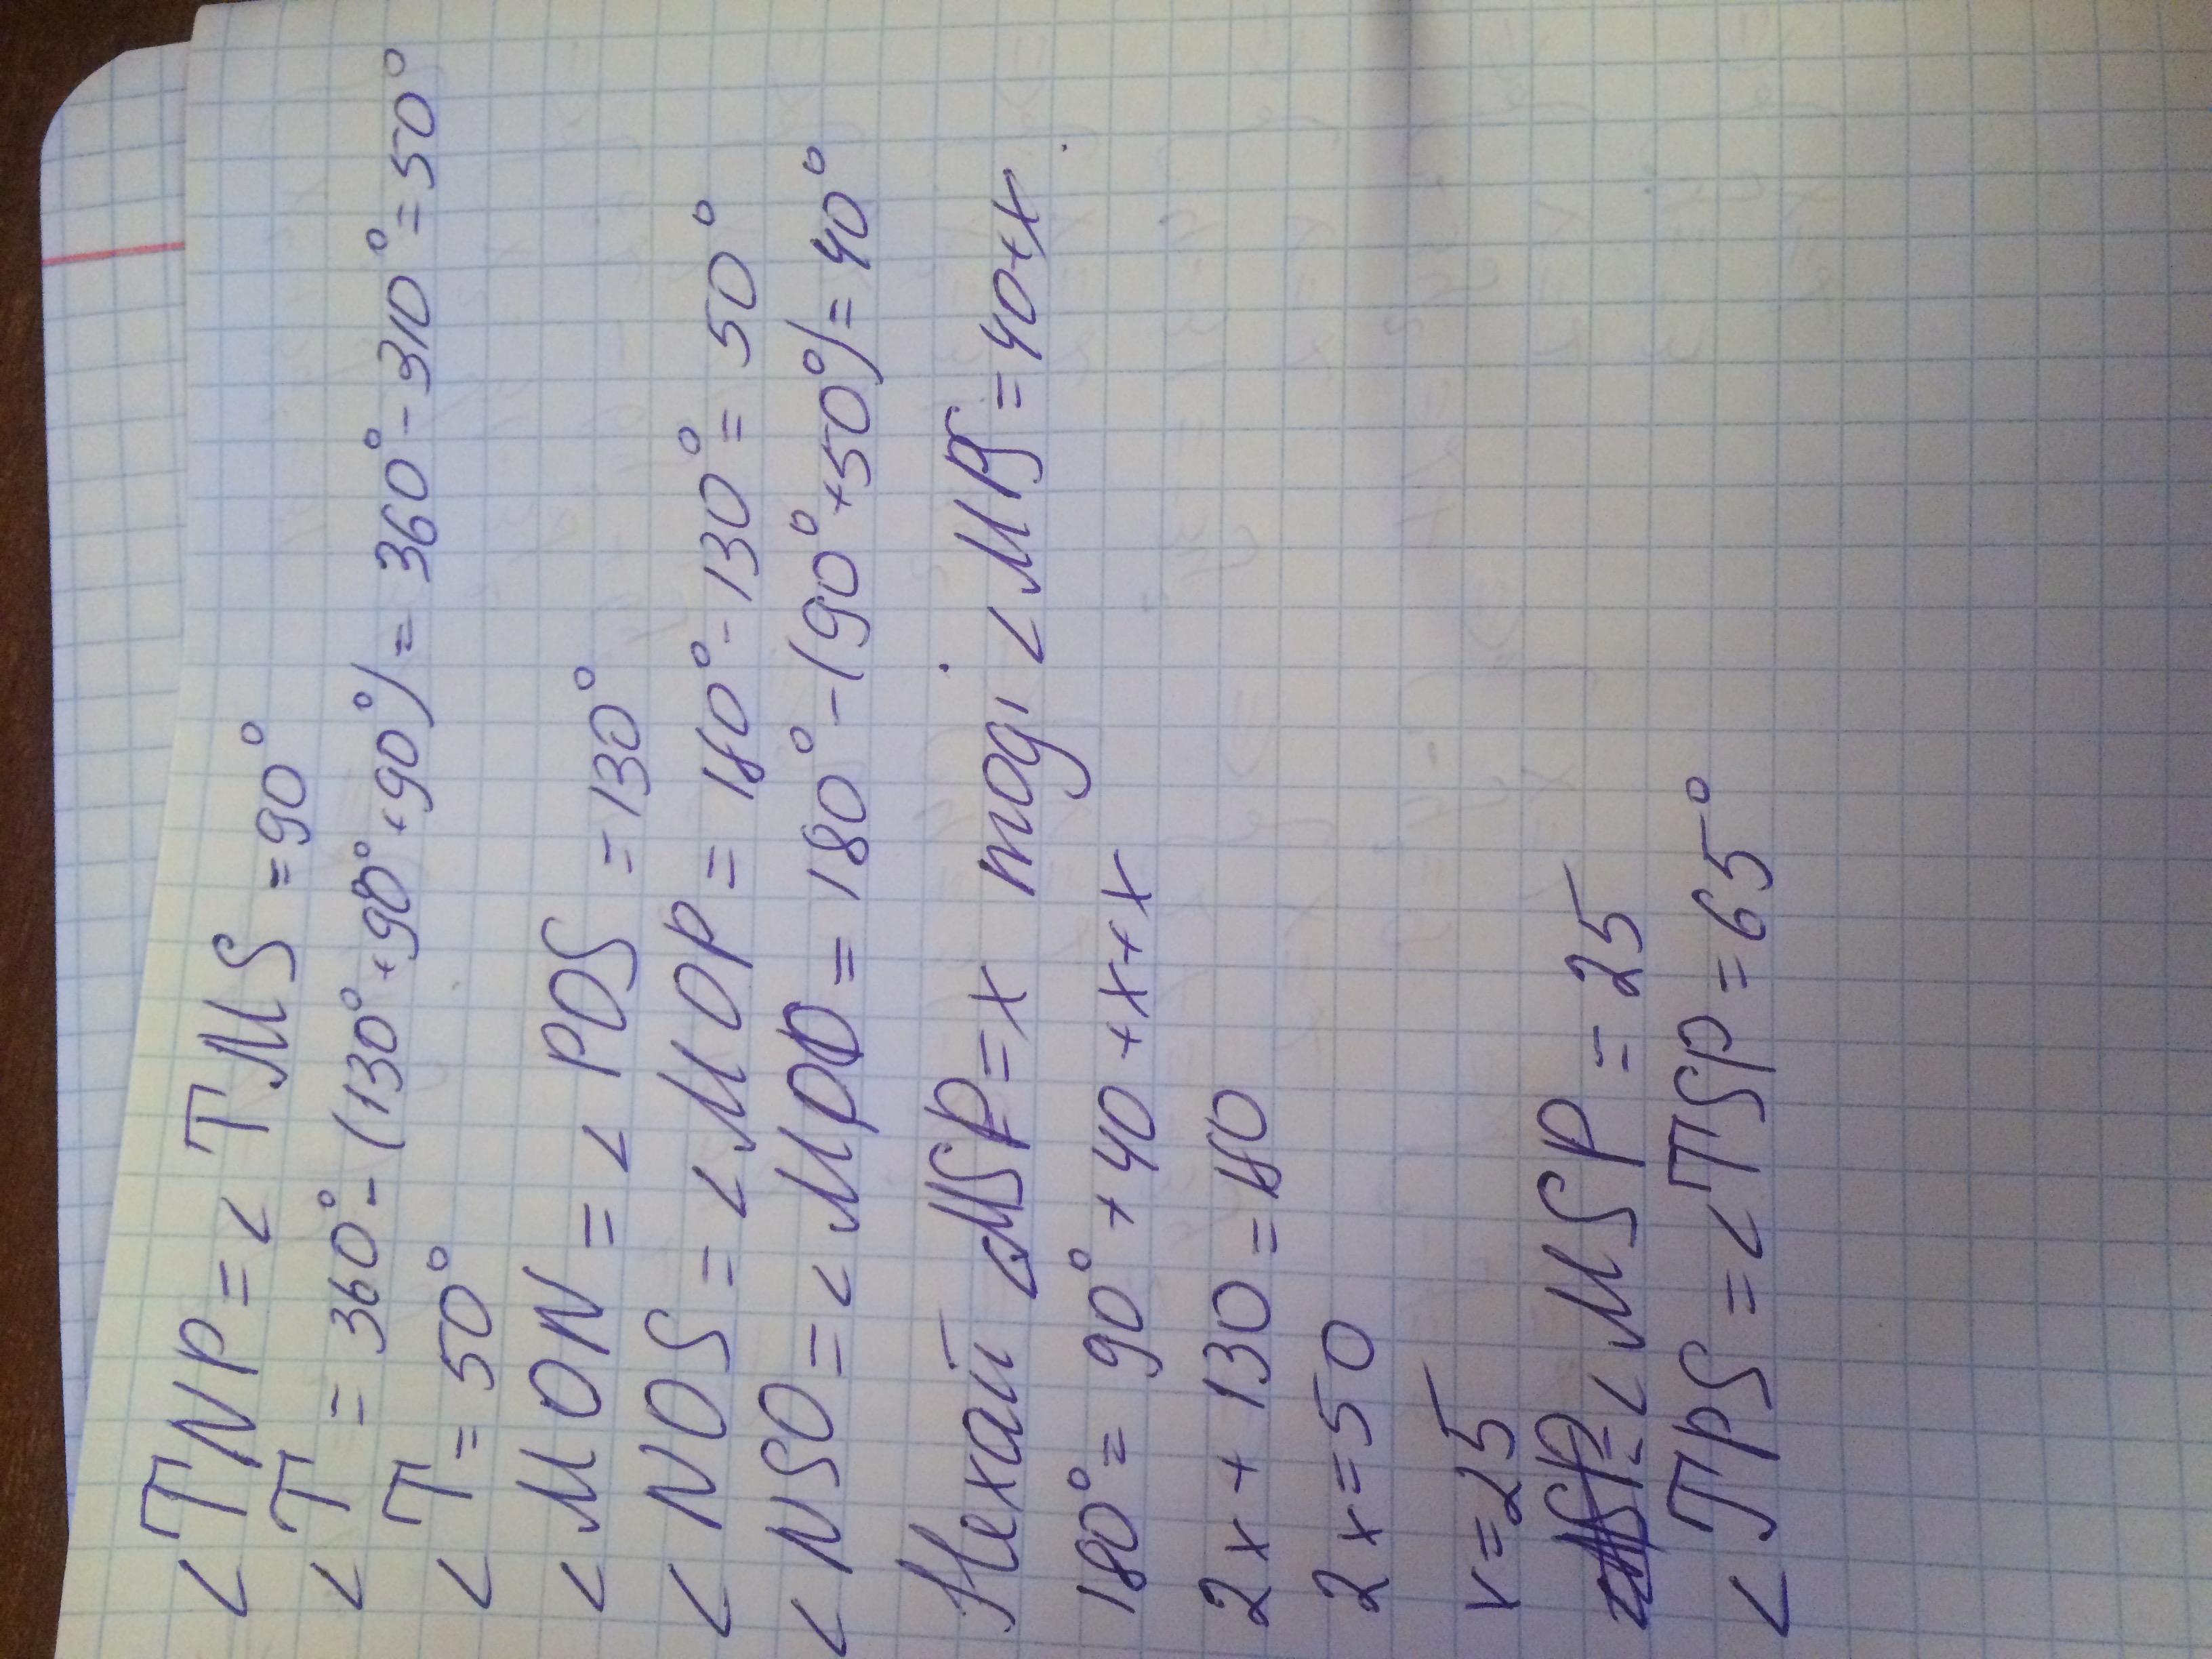 ∠TNP = ∠TMS = 90°
∠T = 360° - (130° + 90° + 90°) = 360° - 310° = 50°
∠T = 50°
∠MON = ∠POS = 130°
∠NOS = ∠MOP = 180° - 130° = 50°
∠NSO = ∠MPO = 180° - (90° + 50°) = 40°
Нехай ∠MSP = x тоді ∠MPS = 40+x
180° = 90° + 40 + x + x
2x + 130 = 180
2x = 50
x = 25
∠MSP = 25
∠TPS = ∠TSP = 65°